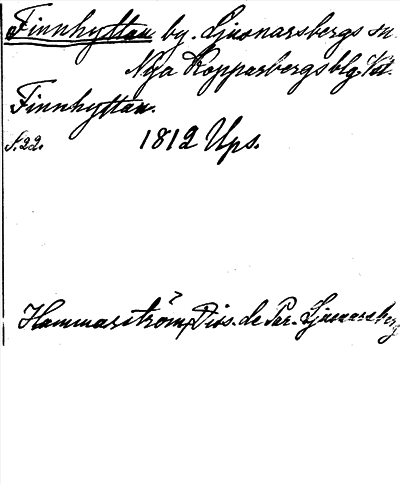 Finnhyttan by. Ljusnarsbergs sn.
Nya Kopparbergs blg. Vstl.
Finnhyttan.
S. 22. 1812 Ups.
Hammarström, Diss. de Par. Ljusnarsberg